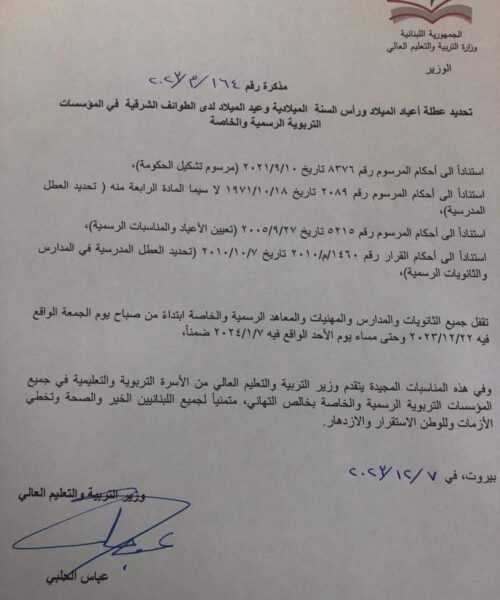 الجمهورية اللبنانية
وزارة التربية والتعليم العالي
الوزير
مذكرة رقم ١٦٤/م/٢٠٢٣
تحديد عطلة أعياد الميلاد ورأس السنة الميلادية وعيد الميلاد لدى الطوائف الشرقية في المؤسسات
التربوية الرسمية والخاصة
استناداً الى أحكام المرسوم رقم ٨٣٧٦ تاريخ ٢٠٢١/٩/١٠ (مرسوم تشكيل الحكومة)،
استناداً الى أحكام المرسوم رقم ٢٠٨٩ تاريخ ١٩٧١/١٠/١٨ لا سيما المادة الرابعة منه ( تحديد العطل
المدرسية)،
استناداً الى أحكام المرسوم رقم ٥٢١٥ تاريخ ٢٠٠٥/٩/٢٧ (تعيين الأعياد والمناسبات الرسمية)،
استناداً الى أحكام القرار رقم ١٤٦٠/م/٢٠١٠ تاريخ ٢٠١٠/١٠/٧ (تحديد العطل المدرسية في المدارس
والثانويات الرسمية)،
تقفل جميع الثانويات والمدارس والمهنيات والمعاهد الرسمية والخاصة ابتداءً من صباح يوم الجمعة الواقع
فيه ٢٠٢٣/١٢/٢٢ وحتى مساء يوم الأحد الواقع فيه ٢٠٢٤/١/٧ ضمناً،
وفي هذه المناسبات المجيدة يتقدم وزير التربية والتعليم العالي من الأسرة التربوية والتعليمية في جميع
المؤسسات التربوية الرسمية والخاصة بخالص التهاني، متمنياً لجميع اللبنانيين الخير والصحة وتخطي
الأزمات وللوطن الاستقرار والازدهار.
بيروت، في ٢٠٢٣/١٢/٧
وزير التربية والتعليم العالي
عباس الحلبي